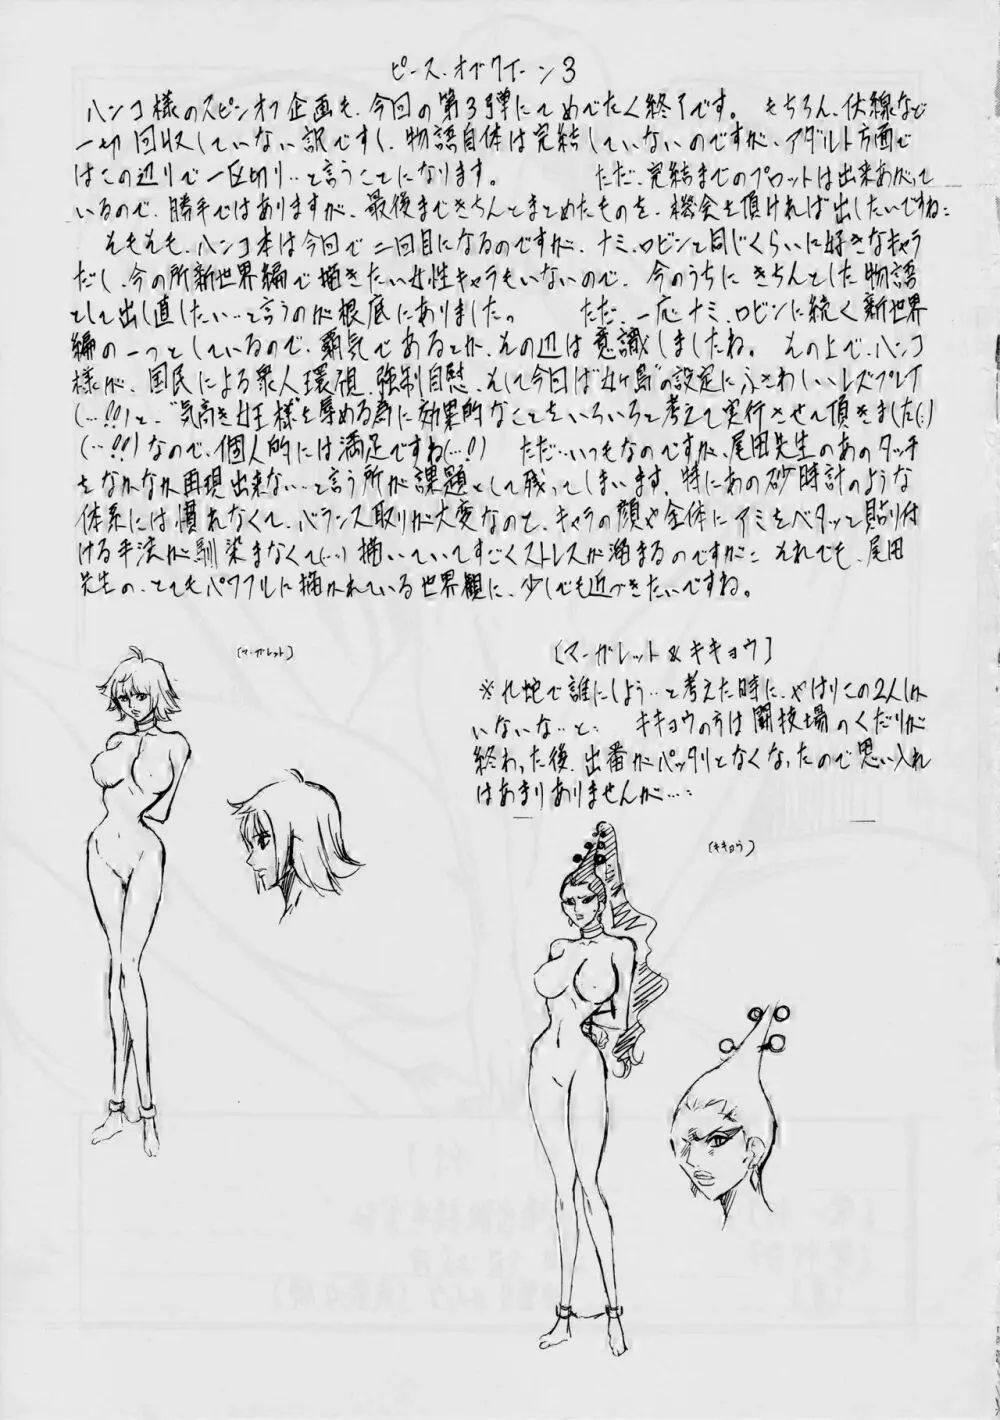 ピース・オブクイーン3
ハンコ様のスピンオフ企画も、今回の第3弾にてめでたく終了です。 もちろん、伏線など
一切回収していない訳ですし、物語自体は完結していないのですが、アダルト方面で
はこの辺りで一区切り…と言うことになります。 ただ、完結までのプロットは出来あがって
いるので、勝手ではありますが、最後まできちんとまとめたものを、機会を頂ければ出したいですね
そもそも、ハンコ本は今回で二回目になるのですが、ナミ、ロビンと同じくらいに好きなキャラ
だし、今の所新世界編で描きたい女性キャラもいないので、今のうちに きちんとした物語
として出し直したい…と言うのが根底にありました。 ただ、一応ナミ、ロビンに続く新世界
編の一つとしているので、覇気であるとか、その辺は意識しましたね。 その上で、ハンコ
様が、国民による衆人環視、強制自慰、そして今回は"女ヶ島"の設定にふさわしいレズプレイ
(…!!)と、"気高き女王様"を辱める為に効果的なことをいろいろと考えて実行させて頂きました
(…!!)なので、個人的には満足ですね(…!) ただ…いつもなのですが、尾田先生のあのタッチ
をなかなか再現出来ない…と言う所が課題として残ってしまいます。特にあの砂時計のような
体系には慣れなくて、バランス取りが大変なのと、キャラの顔や全体にアミをベタッと貼り付
ける手法が馴染まなくて(…)描いていてすごくストレスが溜まるのですが それでも、尾田
先生の、とてもパワフルに描かれている世界観に、少しでも近づきたいですね。
[マーガレット]
[マーガレット&キキョウ]
※九蛇で誰にしよう…と考えた時に、やはりこの2人しか
いないな…と キキョウの方は闘技場のくだりが
終わった後、出番がパッタリとなくなったので思い入れ
はあまりありませんが…
[キキョウ]